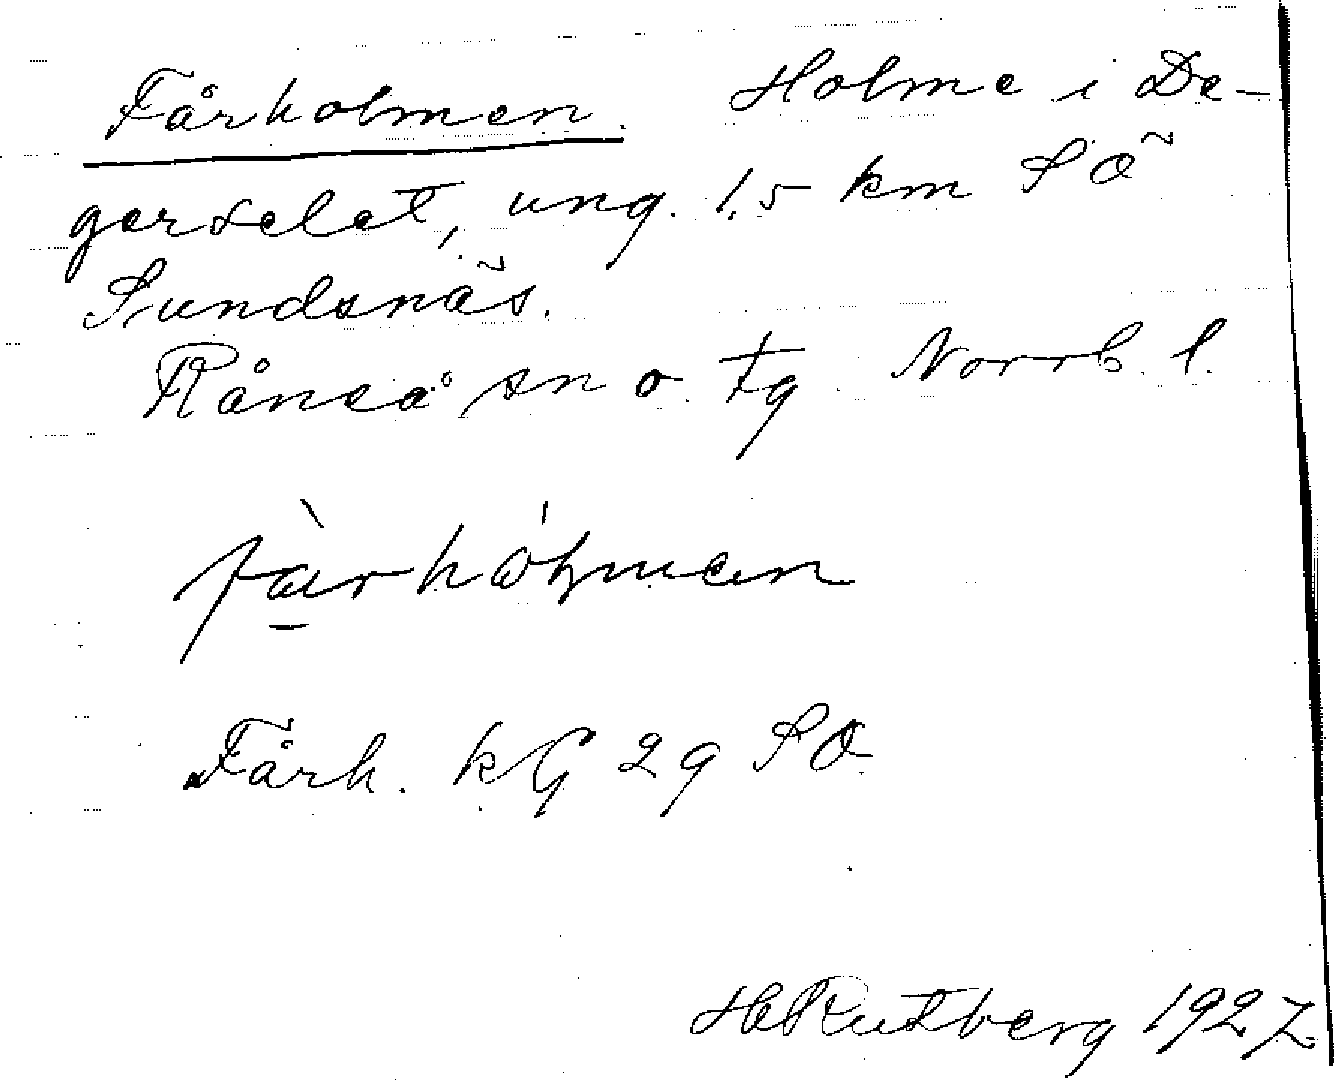 Fårholmen. Holme i De-
gerselet, ung. 1,5 km SÖ
Sundsnäs.
Råneå sn o. tg. Norrb. l.
fàrhólmen
Fårh. kG 29 SO
HRutberg 1927